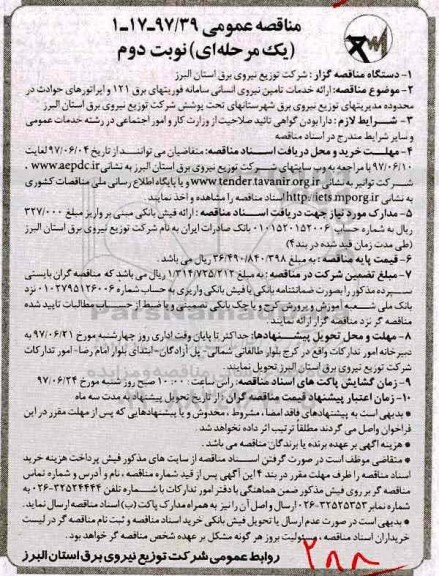 مناقصه عمومی ۹۷/۳۹-۱۷-۱
(یک مرحله‌ای) نوبت دوم
۱- دستگاه مناقصه گزار : شرکت توزیع نیروی برق استان البرز
۲- موضوع مناقصه: ارائه خدمات تامین نیروی انسانی سامانه فوریتهای برق ۱۲۱ و اپراتورهای حوادث در
محدوده مدیریتهای توزیع نیروی برق شهرستانهای تحت پوشش شرکت توزیع نیروی برق استان البرز
۳- شرایط لازم : دارا بودن گواهی تائید صلاحیت از وزارت کار و امور اجتماعی در رشته خدمات عمومی
و سایر شرایط مندرج در اسناد مناقصه
۴- مهلت خرید و محل دریافت اسناد مناقصه: متقاضیان می توانند از تاریخ ۹۷/۰۶/۰۴ لغایت
۹۷/۰۶/۱۰ با مراجعه به وب سایتهای شرکت توزیع نیروی برق استان البرز به نشانی www.aepdc.ir ،
شرکت توانیر به نشانی www.tender.tavanir.org.ir و یا پایگاه اطلاع رسانی ملی مناقصات کشوری
به نشانی http://iets.mporg.ir اسناد مناقصه را مشاهده و اخذ نمایند.
۵- مدارک مورد نیاز جهت دریافت اسناد مناقصه : ارائه فیش بانکی مبنی بر واریز مبلغ ۳۲۷/۰۰۰
ریال به شماره حساب ۰۱۰۱۵۲۰۱۵۲۰۰۶ بانک صادرات ایران به نام شرکت توزیع نیروی برق استان البرز
(طی مدت زمان قید شده در بند۴)
۶- قیمت پایه مناقصه : به مبلغ ۲۶/۴۹۰/۸۴۰/۳۹۸ ریال می باشد.
۷- مبلغ تضمین شرکت در مناقصه : به مبلغ ۱/۳۱۴/۷۲۵/۲۱۲ ریال می باشد که مناقصه گران بایستی
سپرده مذکور را بصورت ضمانتنامه بانکی یا فیش بانکی واریزی به حساب شماره ۰۱۰۲۷۹۵۱۲۶۰۰۶ نزد
بانک ملی شعبه آموزش و پرورش کرج و یا چک بانکی تضمینی و یا ضبط از حساب مطالبات تایید شده
مناقصه گر نزد مناقصه گزار ارائه نمایند.
۸- مهلت و محل تحویل پیشنهادها: حداکثر تا پایان وقت اداری روز چهارشنبه مورخ ۹۷/۰۶/۲۱ به
دبیرخانه امور تدارکات واقع در کرج بلوار طالقانی شمالی- پل آزادگان- ابتدای بلوار امام رضا- امور تدارکات
شرکت توزیع نیروی برق استان البرز تحویل نمایند.
۹- زمان گشایش پاکت های اسناد مناقصه: راس ساعت ۱۰:۰۰ صبح روز شنبه مورخ ۹۷/۰۶/۲۴
۱۰- زمان اعتبار پیشنهاد قیمت مناقصه گران : از تاریخ تحویل پیشنهاد به مدت سه ماه
• بدیهی است به پیشنهادهای فاقد امضا، مشروط ، مخدوش و یا پیشنهادهایی که پس از مهلت مقرر در این
فراخوان واصل می گردند مطلقا ترتیب اثر داده نخواهد شد.
• هزینه آگهی بر عهده برنده یا برندگان مناقصه می باشد .
• متقاضی موظف است در صورت گرفتن اسناد مناقصه از سایت های مذکور فیش پرداخت هزینه خرید
اسناد مناقصه را ظرف مهلت مقرر در بند ۴ این آگهی پس از قید شماره مناقصه ، نام و آدرس و شماره تماس
مناقصه گر بر روی فیش مذکور ضمن هماهنگی با دفتر امور تدارکات با شماره تلفن ۳۲۵۲۴۴۴۴-۰۲۶
به شماره نمابر ۳۲۵۲۵۳۵۳-۰۲۶ ارسال و اصل آن را نیز به همراه مدارک پاکت (ب) اسناد مناقصه ارسال نماید.
• بدیهی است در صورت عدم ارسال یا تحویل فیش بانکی خرید اسناد مناقصه و ثبت نام مناقصه گر در لیست
خریداران اسناد مناقصه ، مسئولیت بروز هر گونه مشکل بر عهده شخص مناقصه گر خواهد بود.
روابط عمومی شرکت توزیع نیروی برق استان البرز